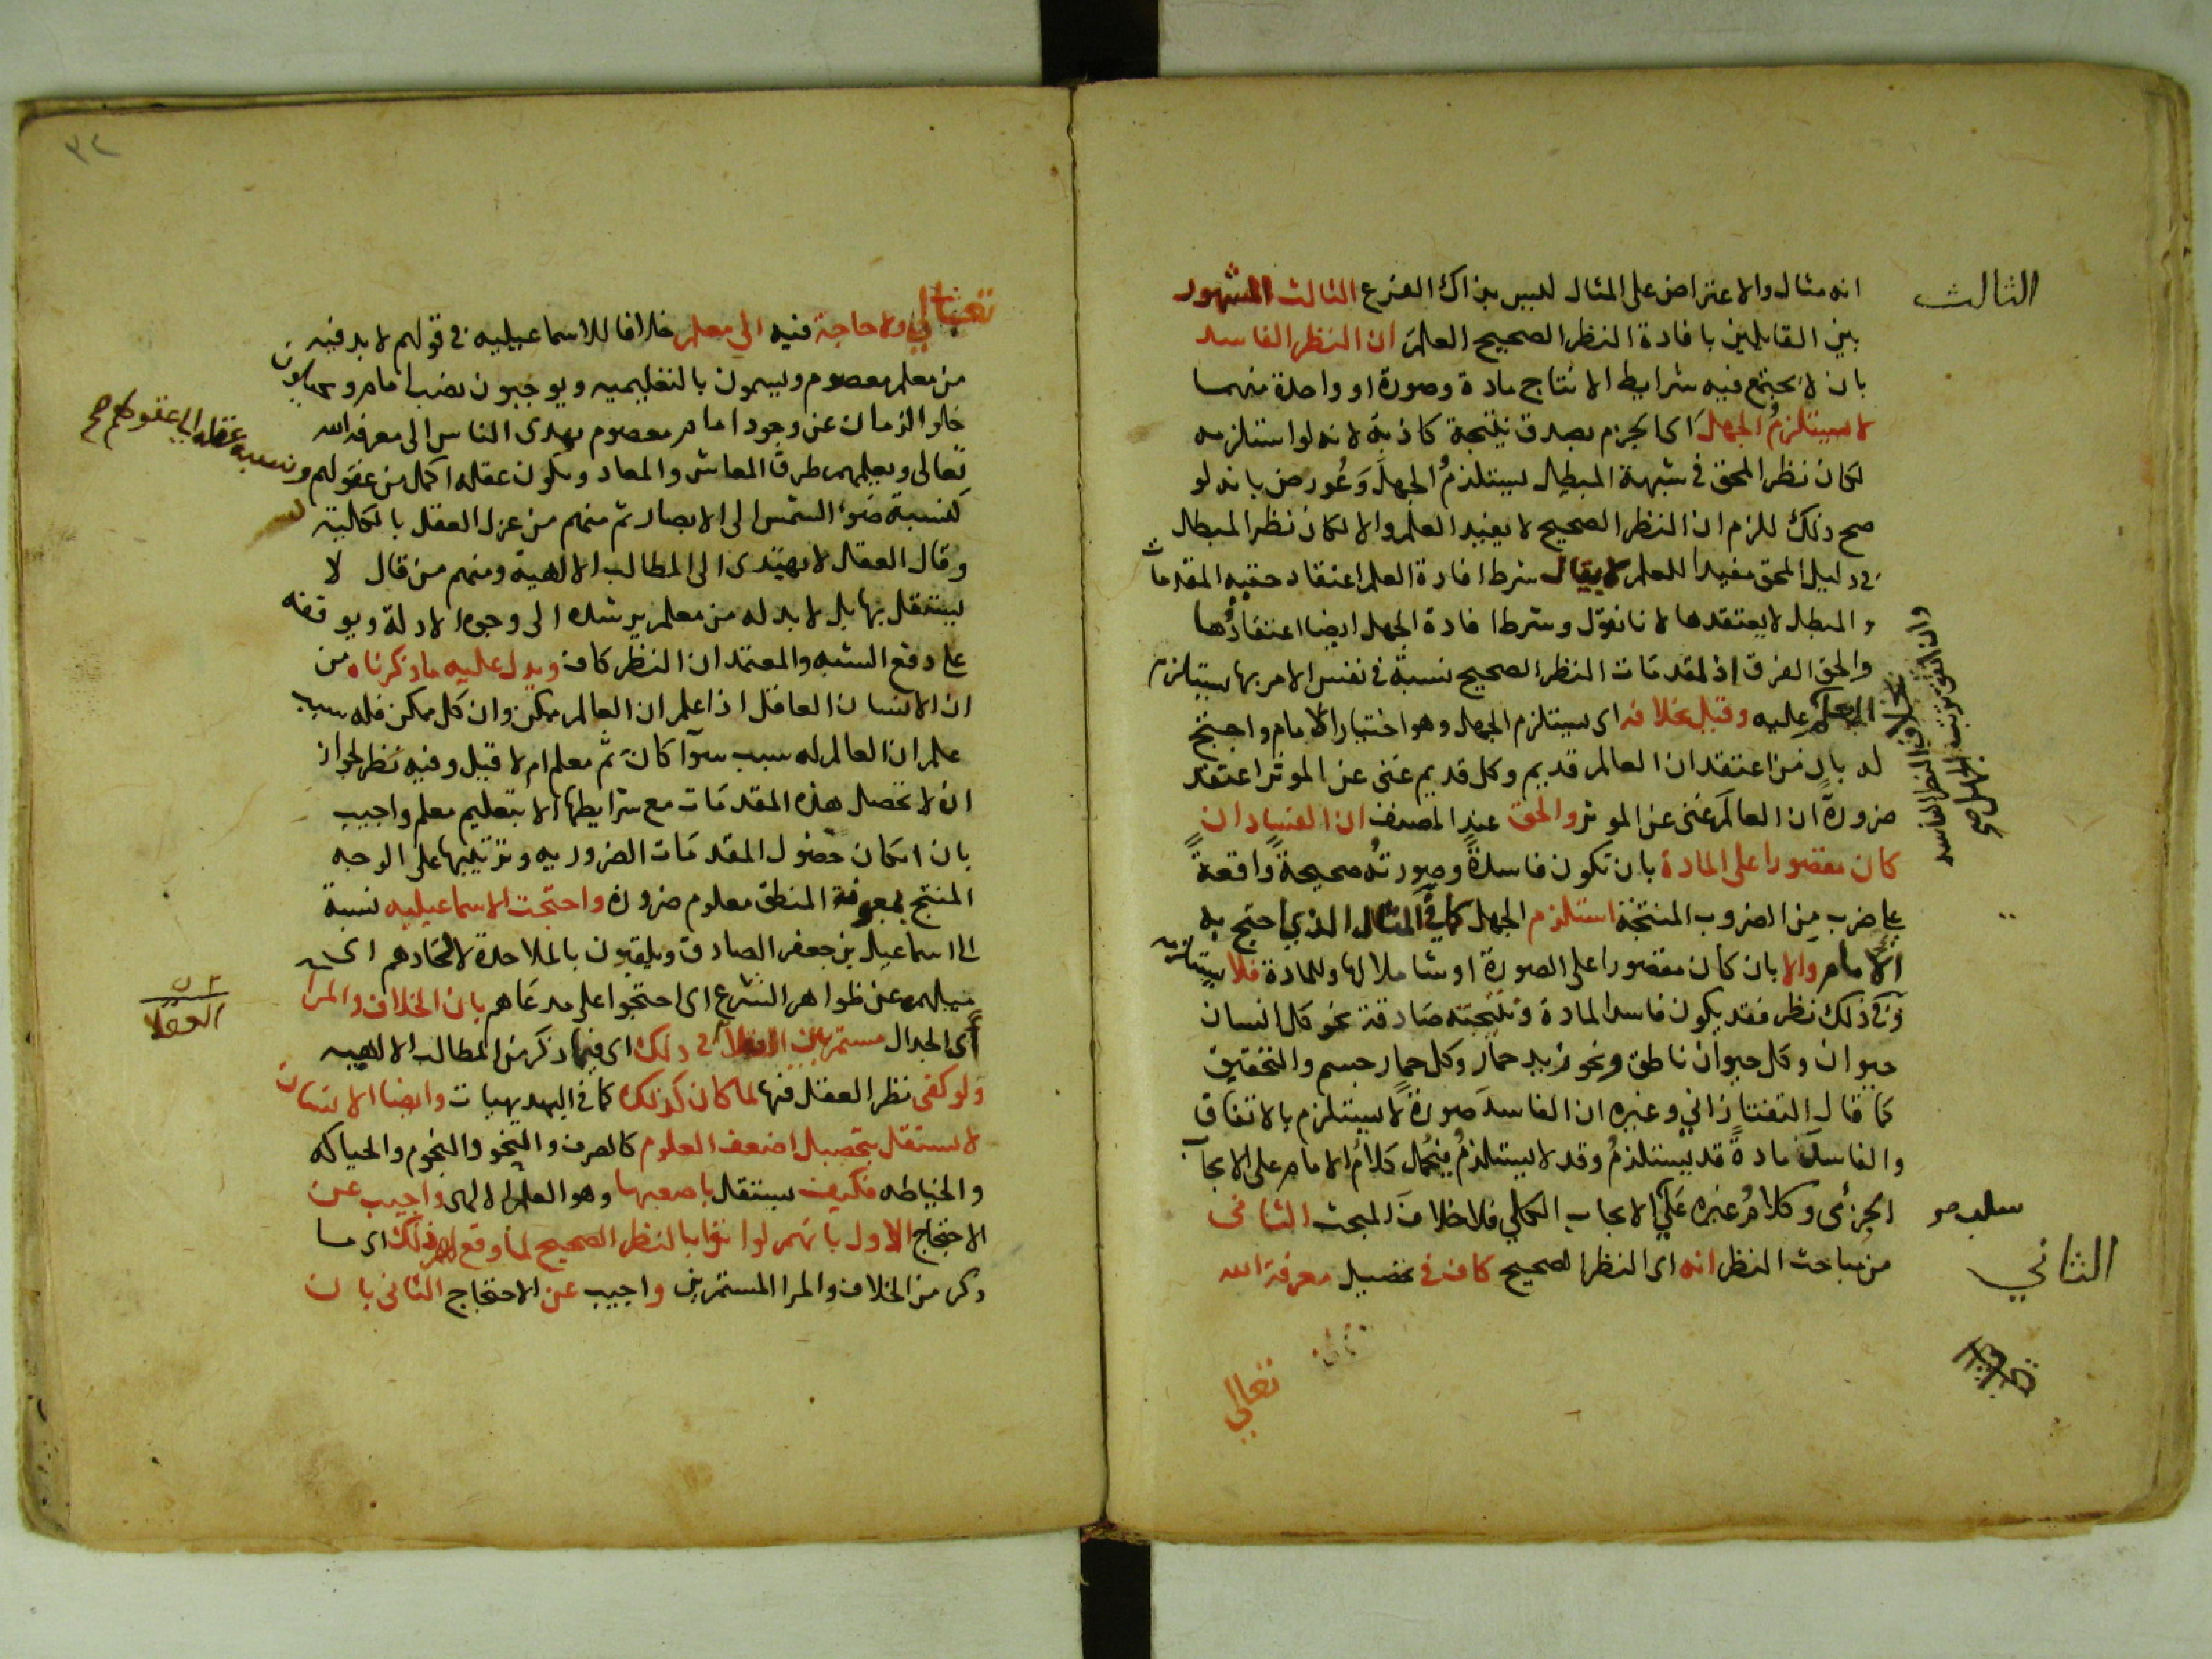 الثالث
انه مثال والاعتراض على المثال ليس بذاك الفرع الثالث المشهور
بين القايلين بافادة النظر الصحيح العلم ان النظر الفاسد
بان لا يجتمع فيه شرايط الانتاج مادة وصورة او واحدة منهما
لا يستلزم الجهل اى الجزم بصدق نتيجة كاذبة لانه لو استلزمه
لكان نظر المحق في شبهة المبطل يستلزم الجهل وعورض بانه لو
صح ذلك للزم ان النظر الصحيح لا يفيد العلم والا لكان نظر المبطل
في دليل المحق مفيدا للعلم لا يقال شرط افادة العلم اعتقاد حقية المقدمات
والمبطل لا يعتقدها لانا نقول وشرط افادة الجهل ايضا اعتقادها
والحق الفرق اذ لمقدمات النظر الصحيح نسبة في نفس الامر بها يستلزم
العلم عليه وقيل بخلافه اى يستلزم الجهل وهو اختيار الامام واحتج
بخلاف النظر الفاسد
له بان من اعتقد ان العالم قديم وكل قديم غنى عن الموثر اعتقد
ضرورة ان العالم غنى عن الموثر والحق عند المصنف ان الفساد ان
كان مقصورا على المادة بان تكون فاسدة وصورته صحيحة واقعة
على ضرب من الضروب المنتجة استلزم الجهل كما في المثال الذي احتج به
الامام والا بان كان مقصورا على الصورة او شاملا لها وللمادة فلا يستلزمه
وفي ذلك نظر فقد يكون فاسد المادة ونتيجته صادقة نحو كل انسان
حيوان وكل حيوان ناطق ونحو زيد حمار وكل حمار جسم والتحقيق
كما قال التفتازاني وغيره ان الفاسد صورة لا يستلزم بالاتفاق
والفاسد مادة قد يستلزم وقد لا يستلزم فيحمل كلام الامام على الايجاب
الجزئى وكلام غيره على الايجاب الكلي فلا خلاف المبحث الثانى
سلب صح
من مباحث النظر انه اى النظر الصحيح كاف في تحصيل معرفة الله
الثاني
تعالى
٣٢
تعالى ولا حاجة فيه الى معلم خلافا للاسماعيليه في قولهم لا بد فيه
من معلم معصوم ويسمون بالتعليميه ويوجبون نصب امام و يكون
خلو الزمان عن وجود امام معصوم يهدى الناس الى معرفة الله
تعالى ويعلمهم طرق المعاش والمعاد ويكون عقله اكمل من عقولهم
ونسبة عقله الى عقولهم صح
كنسبة ضوء الشمس الى الابصار ثم منهم من عزل العقل بالكلية
وقال العقل لا يهتدى الى المطالب الالهية ومنهم من قال لا
يستقل بها بل لا بد له من معلم يرشده الى وجوه الادلة ويوقفه
على دفع الشبه والمعتمد ان النظر كاف ويدل عليه ما ذكرناه من
ان الانسان العاقل اذا علم ان العالم ممكن وان كل ممكن فله سبب
علم ان العالم له سبب سوآ كان ثم معلم ام لا قيل وفيه نظر لجواز
ان لا تحصل هذه المقدمات مع شرايطها الا بتعليم معلم واجيب
بان امكان حصول المقدمات الضروريه وترتيبها على الوجه
المنتج بمعرفة المنطق معلوم ضرورة واحتجت الاسماعيليه نسبة
الى اسماعيل بن جعفر الصادق ويلقبون بالملاحدة لالحادهم اى
ميلهم عن ظواهر الشرع اى احتجوا على مدعاهم بان الخلاف والمرا
اى الجدال مستمر بين العقلا في ذلك اى فيما ذكر من المطالب الالهيه
العقلا
ولو كفى نظر العقل فيها لما كان كذلك كما في البديهيات وايضا الانسان
لا يستقل بتحصيل اضعف العلوم كالصرف والنحو والنجوم والحياكه
والخياطه فكيف يستقل باصعبها وهو العلم الالهى واجيب عن
الاحتجاج الاول بانهم لو اتوا بالنظر الصحيح لما وقع لهم ذلك اى ما
ذكر من الخلاف والمرا المستمرين واجيب عن الاحتجاج الثانى بان